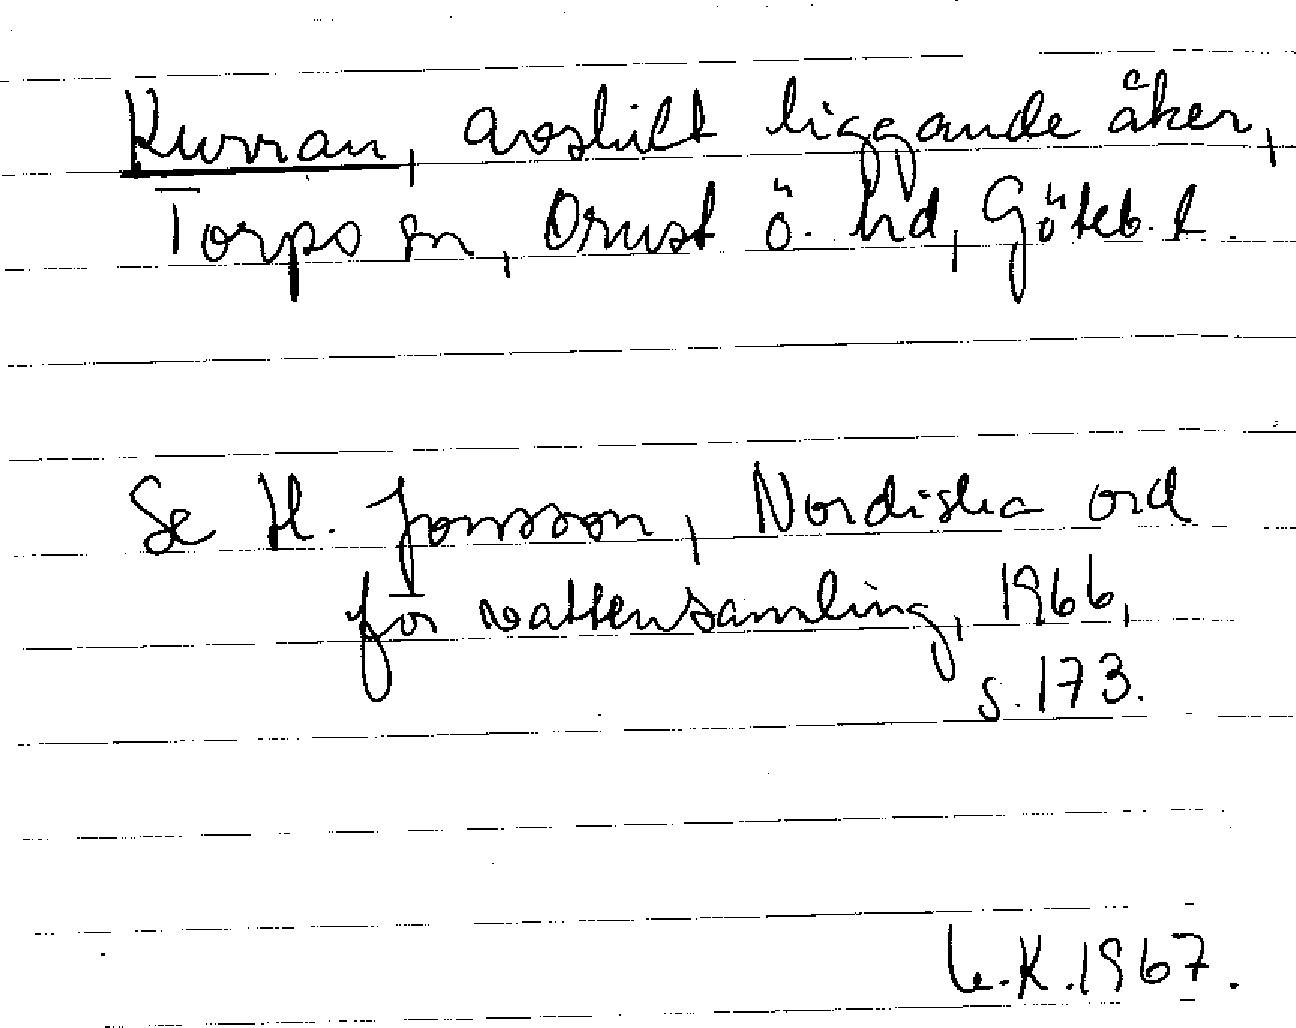 Kurran, avskilt liggande åker,
Torps sn, Orust ö. hd, Göteb. l.
Se H. Jonsson, Nordiska ord
för vattensamling, 1966,
s. 173.
K. 1967.